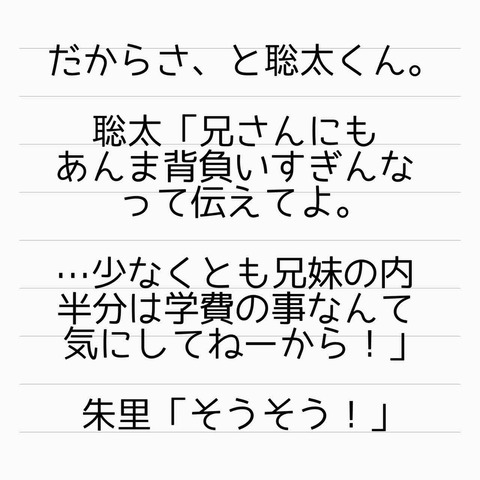 だからさ、と聡太くん。
聡太「兄さんにも
あんま背負いすぎんな
って伝えてよ。
…少なくとも兄妹の内
半分は学費の事なんて
気にしてねーから！」
朱里「そうそう！」